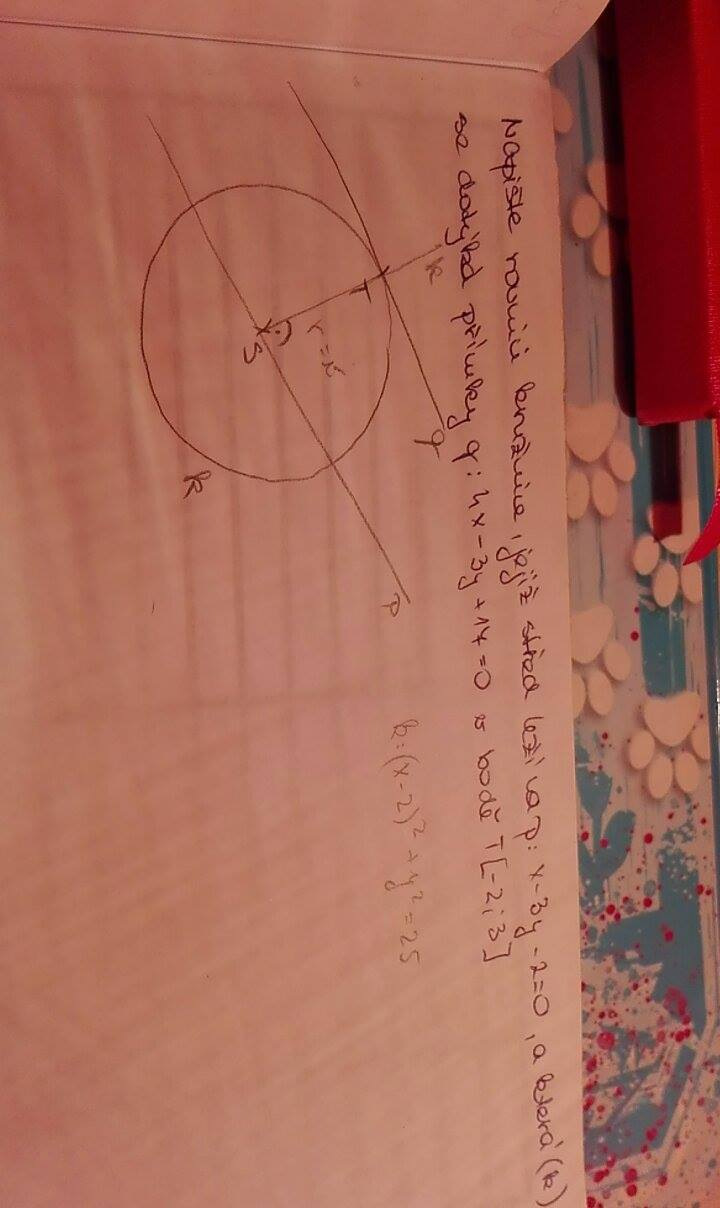 Napište rovnici kružnice, jejíž střed leží na p: x-3y-2=0, a která (k)
se dotýká přímky q: 4x-3y+17=0 v bodě T[-2;3]
k: (x-2)²+y²=25
T
q
r=
S
p
k